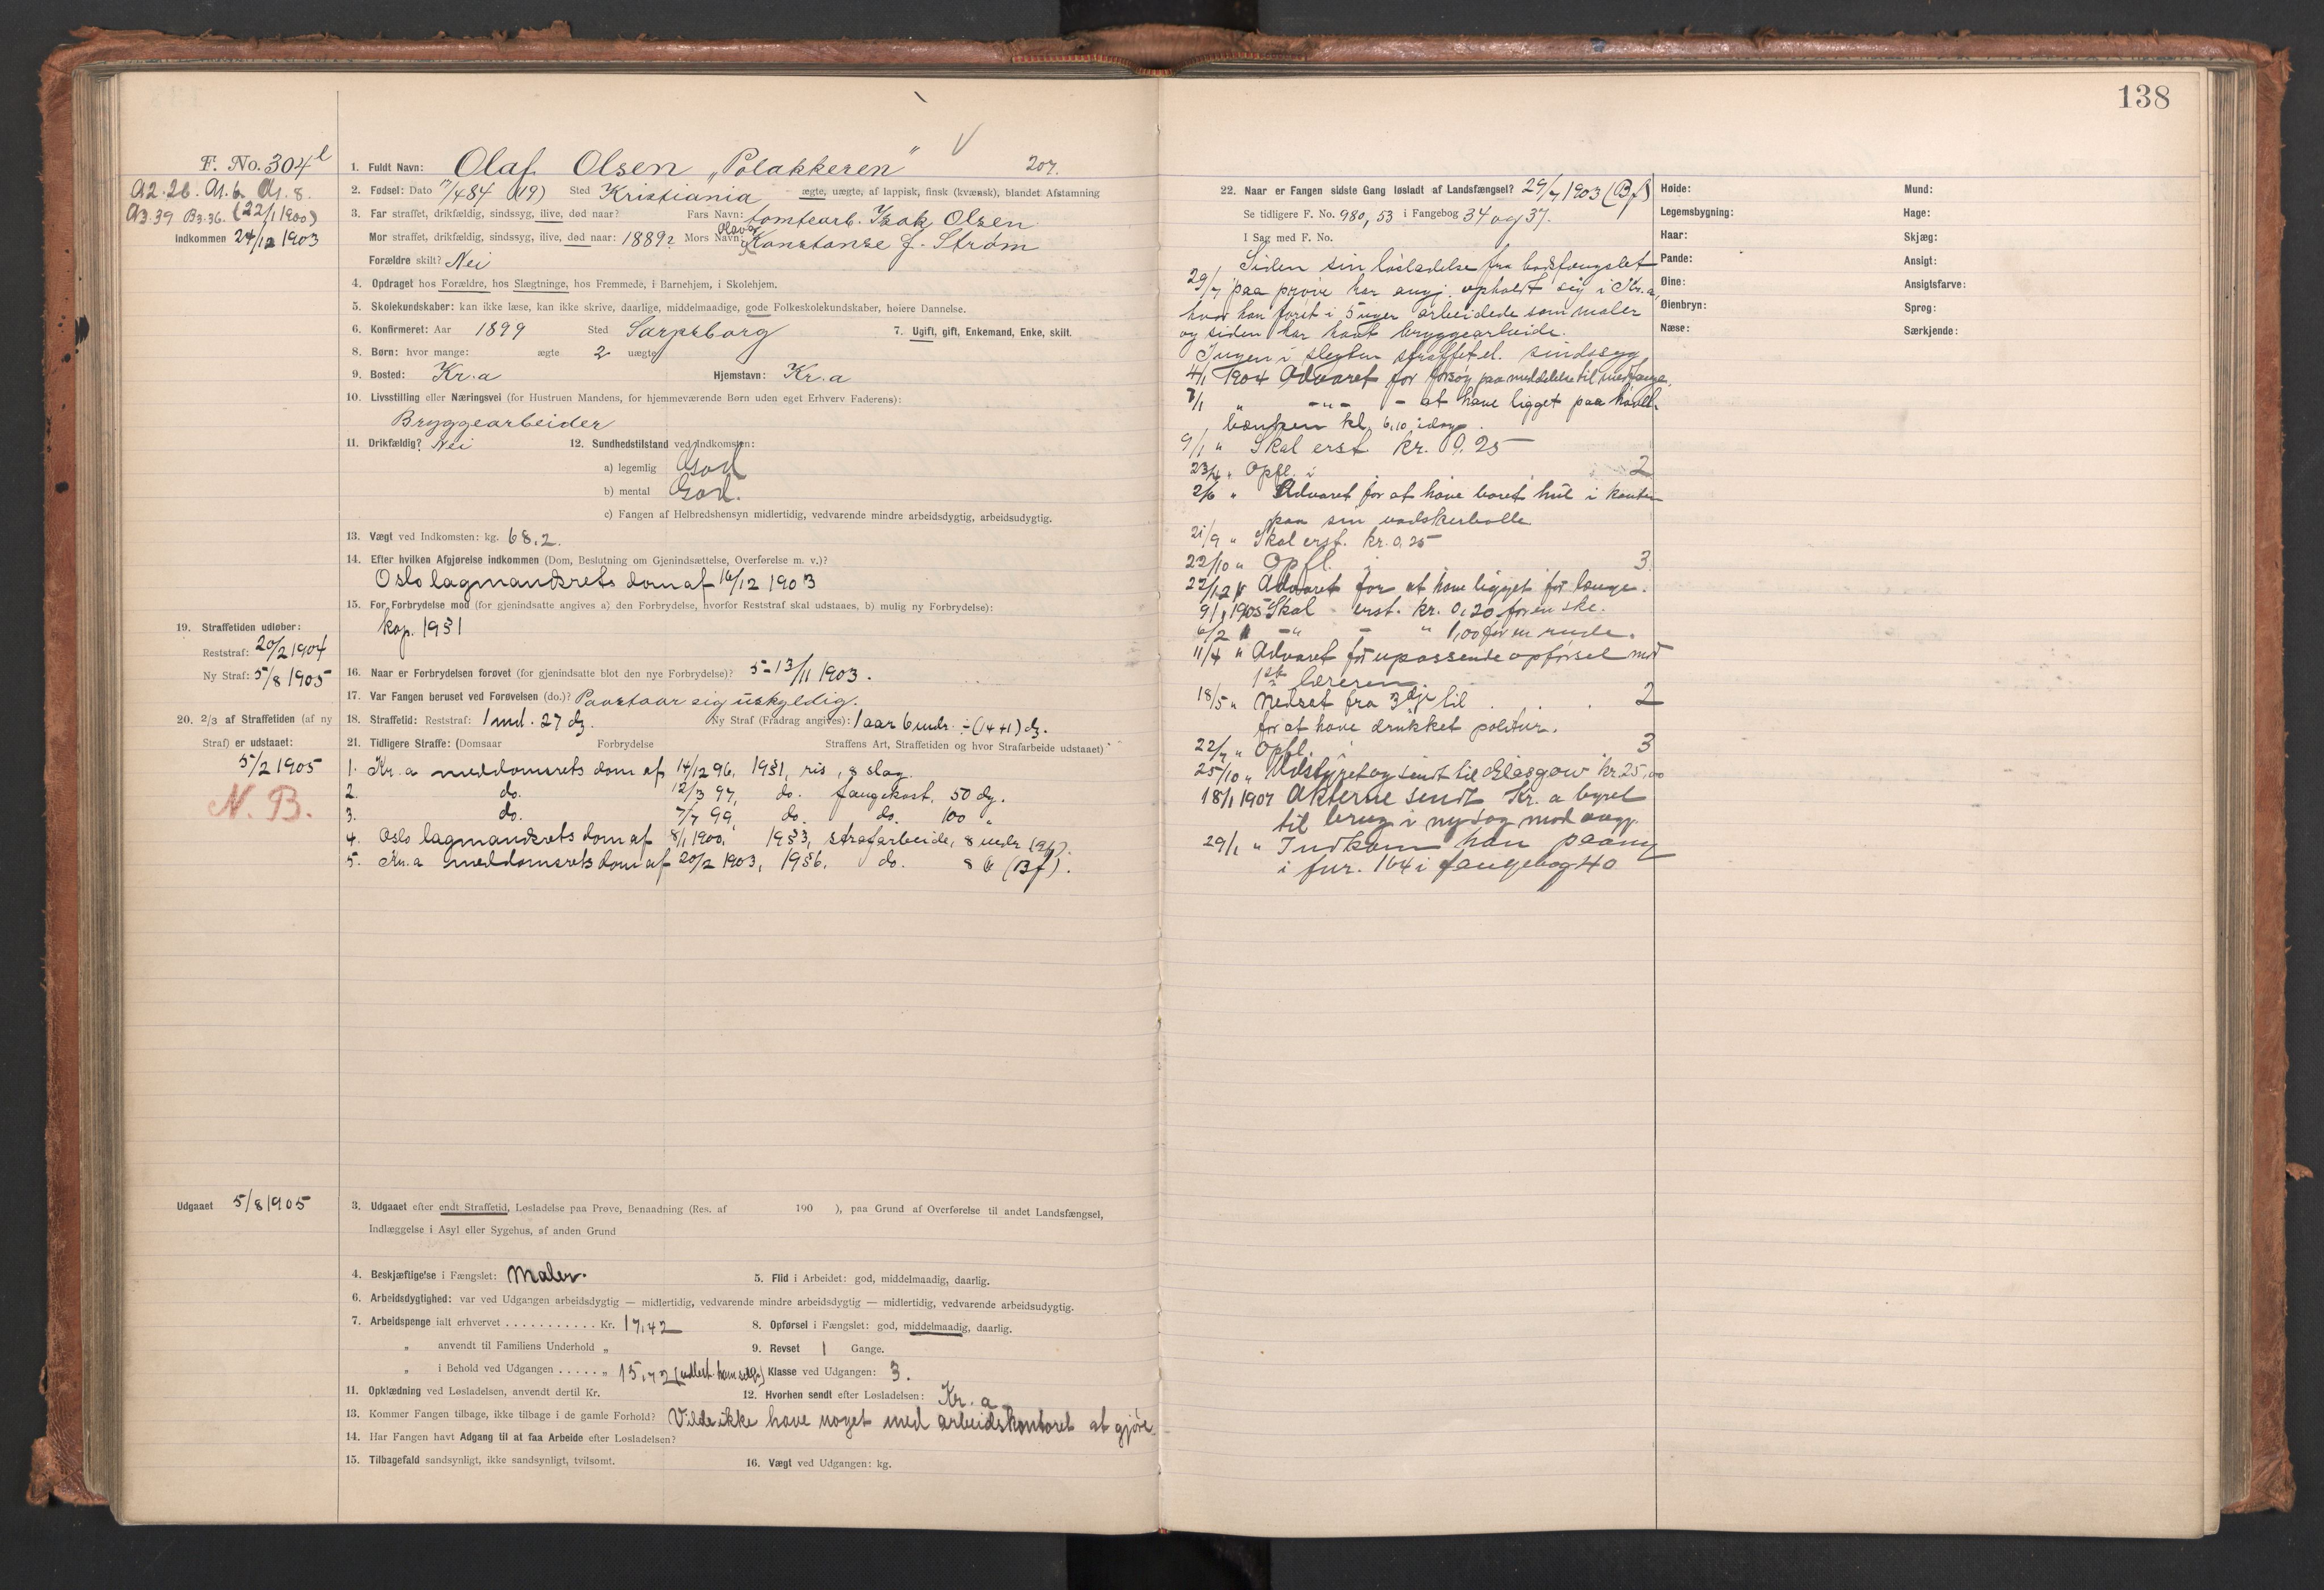 138
F. No. 304
A2.26. A1.6. A1.8.
A3.39 B3.36. (22/1 1900)
Indkommen 24/12 1903
1. Fuldt Navn: Olaf Olsen „Polakkeren" 207.
2. Fødsel: Dato 7/4 84 (19) Sted Kristiania ægte, uægte, af lappisk, finsk (kvænsk), blandet Afstamning
3. Far straffet, drikfældig, sindssyg, ilive, død naar? Fars Navn: tomtearb. Isak Olsen
Mor straffet, drikfældig, sindssyg, ilive, død naar: 1889? Mors Navn: Olava Konstanse J. Strøm
Forældre skilt? Nei
4. Opdraget hos Forældre, hos Slægtninge, hos Fremmede, i Barnehjem, i Skolehjem.
5. Skolekundskaber: kan ikke læse, kan ikke skrive, daarlige, middelmaadige, gode Folkeskolekundskaber, høiere Dannelse.
6. Konfirmeret: Aar 1899 Sted Sarpsborg 7. Ugift, gift, Enkemand, Enke, skilt.
8. Børn: hvor mange: ægte 2 uægte
9. Bosted: Kr.a Hjemstavn: Kr.a
10. Livsstilling eller Næringsvei (for Hustruen Mandens, for hjemmeværende Børn uden eget Erhverv Faderens):
Bryggearbeider
11. Drikfældig? Nei 12. Sundhedstilstand ved Indkomsten:
a) legemlig God
b) mental God.
c) Fangen af Helbredshensyn midlertidig, vedvarende mindre arbeidsdygtig, arbeidsudygtig.
13. Vægt ved Indkomsten: kg. 68.2.
14. Efter hvilken Afgjørelse indkommen (Dom, Beslutning om Gjenindsættelse, Overførelse m. v.)?
Oslo lagmandsrets dom af 16/12 1903
15. For Forbrydelse mod (for gjenindsatte angives a) den Forbrydelse, hvorfor Reststraf skal udstaaes, b) mulig ny Forbrydelse):
kap. 19 § 1
19. Straffetiden udløber:
Reststraf: 20/2 1904
Ny Straf: 5/8 1905
16. Naar er Forbrydelsen forøvet (for gjenindsatte blot den nye Forbrydelse)? 5-13/11 1903.
17. Var Fangen beruset ved Forøvelsen (do.)? Paastaar sig uskyldig.
20. 2/3 af Straffetiden (af ny Straf) er udstaaet:
5/2 1905
N.B.
18. Straffetid: Reststraf: 1 md. 27 dg. Ny Straf (Fradrag angives): 1 aar 6 mdr. ÷ (14+1) dg.
21. Tidligere Straffe: (Domsaar Forbrydelse Straffens Art, Straffetiden og hvor Strafarbeide udstaaet)
1. Kr.a meddomsrets dom af 14/12 96, 19 § 1, ris, 8 slag.
2. do. 12/3 97, do. fangekost, 50 dg.
3. do. 7/7 99, do. do. 100 "
4. Oslo lagmandsrets dom af 8/1 1900, 19 § 3, strafarbeide, 8 mdr.
5. Kr.a meddomsrets dom af 20/2 1903, 19 § 6, do. 8 (Bf).
Udgaaet 5/8 1905
3. Udgaaet efter endt Straffetid, Løsladelse paa Prøve, Benaadning (Res. af 190 ), paa Grund af Overførelse til andet Landsfængsel,
Indlæggelse i Asyl eller Sygehus, af anden Grund
4. Beskjæftigelse i Fængslet: Maler. 5. Flid i Arbeidet: god, middelmaadig, daarlig.
6. Arbeidsdygtighed: var ved Udgangen arbeidsdygtig — midlertidig, vedvarende mindre arbeidsdygtig — midlertidig, vedvarende arbeidsudygtig.
7. Arbeidspenge ialt erhvervet . . . . . . . . . . . . Kr. 17,42 8. Opførsel i Fængslet: god, middelmaadig, daarlig.
„ anvendt til Familiens Underhold „ 9. Revset 1 Gange.
„ i Behold ved Udgangen . . . . . „ 15,42 10. Klasse ved Udgangen: 3.
11. Opklædning ved Løsladelsen, anvendt dertil Kr. 12. Hvorhen sendt efter Løsladelsen: Kr. a.
13. Kommer Fangen tilbage, ikke tilbage i de gamle Forhold? Vilde ikke have noget med arbeidskontoret at gjøre
14. Har Fangen havt Adgang til at faa Arbeide efter Løsladelsen?
15. Tilbagefald sandsynligt, ikke sandsynligt, tvilsomt. 16. Vægt ved Udgangen: kg.
22. Naar er Fangen sidste Gang løsladt af Landsfængsel? 29/7 1903 (Bf)
Se tidligere F. No. 980, 53 i Fangebog 34 og 37.
I Sag med F. No.
Siden sin løsladelse fra bodsfængslet
29/7 paa prøve har angj. opholdt sig i Kr.a,
hvor han først i 5 uger arbeidede som maler
og siden har havt bryggearbeide.
Ingen i slegten straffet el. sindssyg
4/1 1904 Advaret for forsøg paa meddelelse til medfange.
7/1 " -"- - at have ligget paa høvel-
bænken kl. 6,10 idag
9/1 " Skal erst. kr. 0.25
23/4 " Opfl. i 2
2/6 " Advaret for at have boret hul i kanten
paa sin vadskerbolle
21/9 " Skal erst. kr. 0.25
22/10 " Opfl. i 3.
22/12 " Advaret for at have ligget for længe.
9/1 1905 Skal erst. kr. 0,20 for en ske.
6/2 " -"- - " 1,00 for en rude.
11/4 " Advaret for upassende opførsel mod
1ste læreren.
18/5 " Nedsat fra 3dje til . . . 2
for at have drukket politur.
22/7 " Opfl. i 3
25/10 " Udstyret og sendt til Glasgow kr. 25,00
18/1 1907 Akterne sendt Kr.a byret
til brug i ny sag mod angj.
29/1 " Indkom han paany
i fnr. 164 i fangebog 40
Høide:
Legemsbygning:
Haar:
Pande:
Øine:
Øienbryn:
Næse:
Mund:
Hage:
Skjæg:
Ansigt:
Ansigtsfarve:
Sprog:
Særkjende: